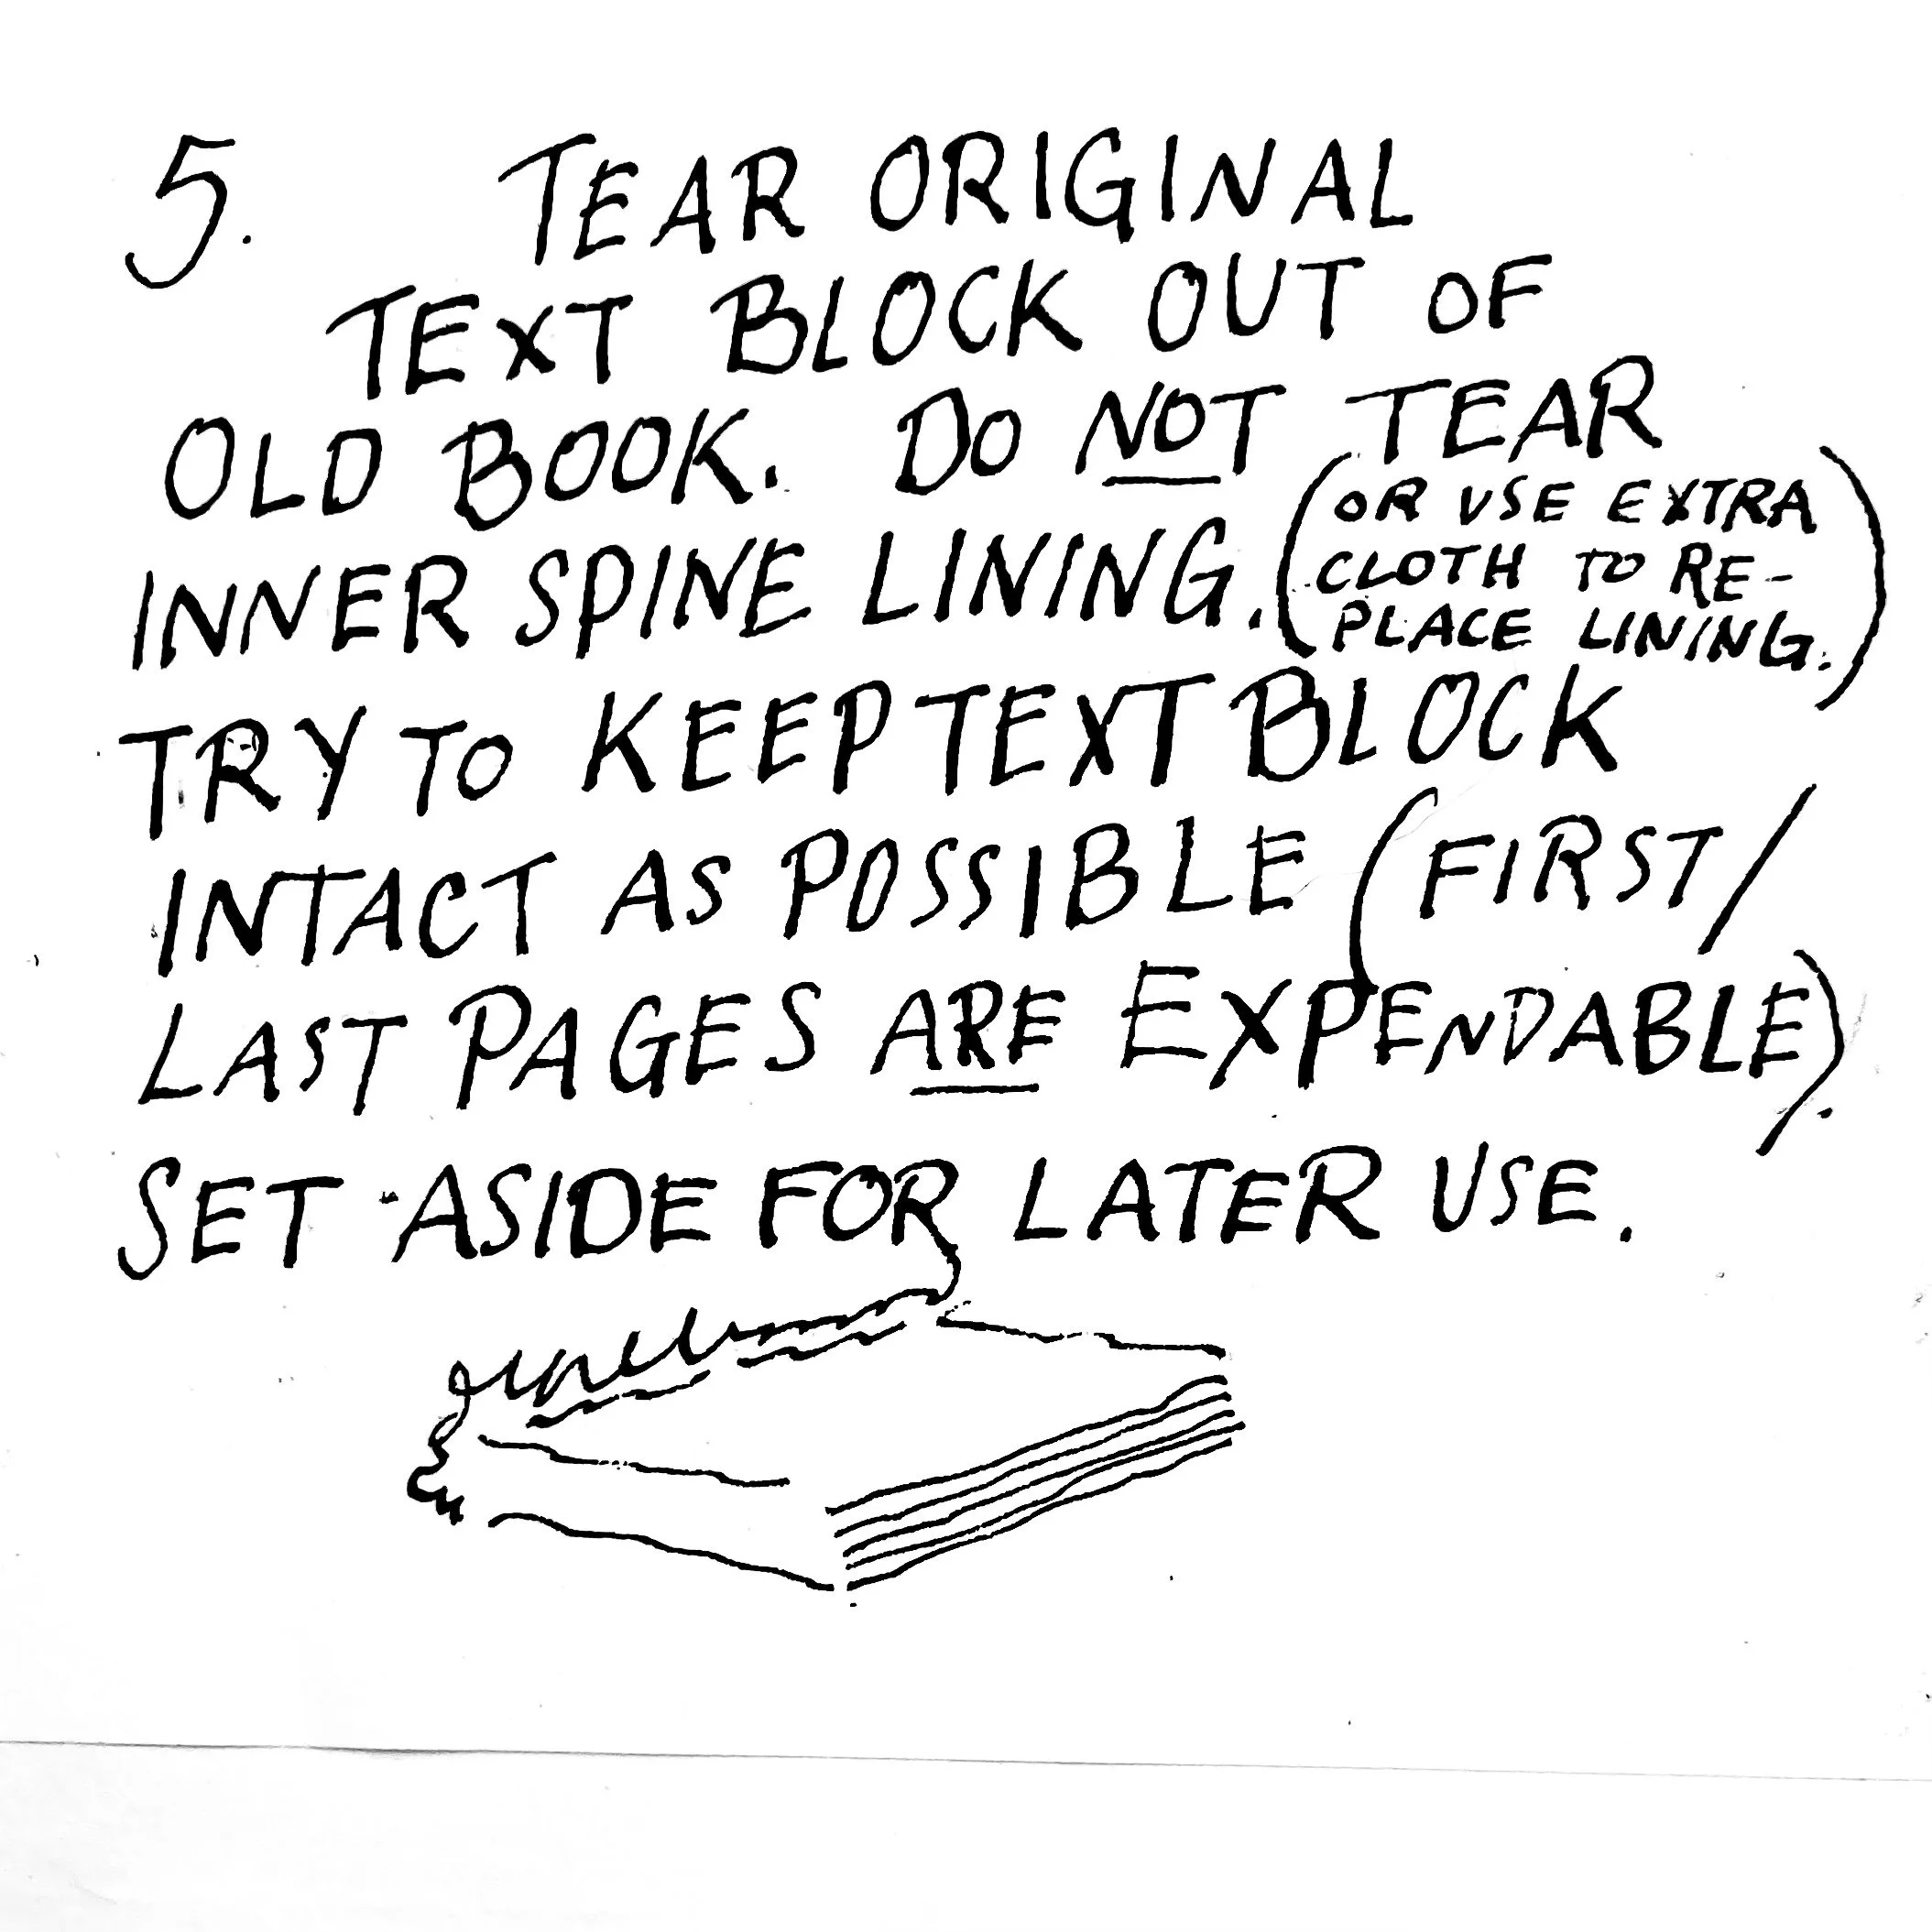 5. TEAR ORIGINAL
TEXT BLOCK OUT OF
OLD BOOK. DO NOT TEAR
INNER SPINE LINING. (OR USE EXTRA
CLOTH TO RE-
PLACE LINING.)
TRY TO KEEP TEXT BLOCK
INTACT AS POSSIBLE (FIRST/
LAST PAGES ARE EXPENDABLE).
SET ASIDE FOR LATER USE.